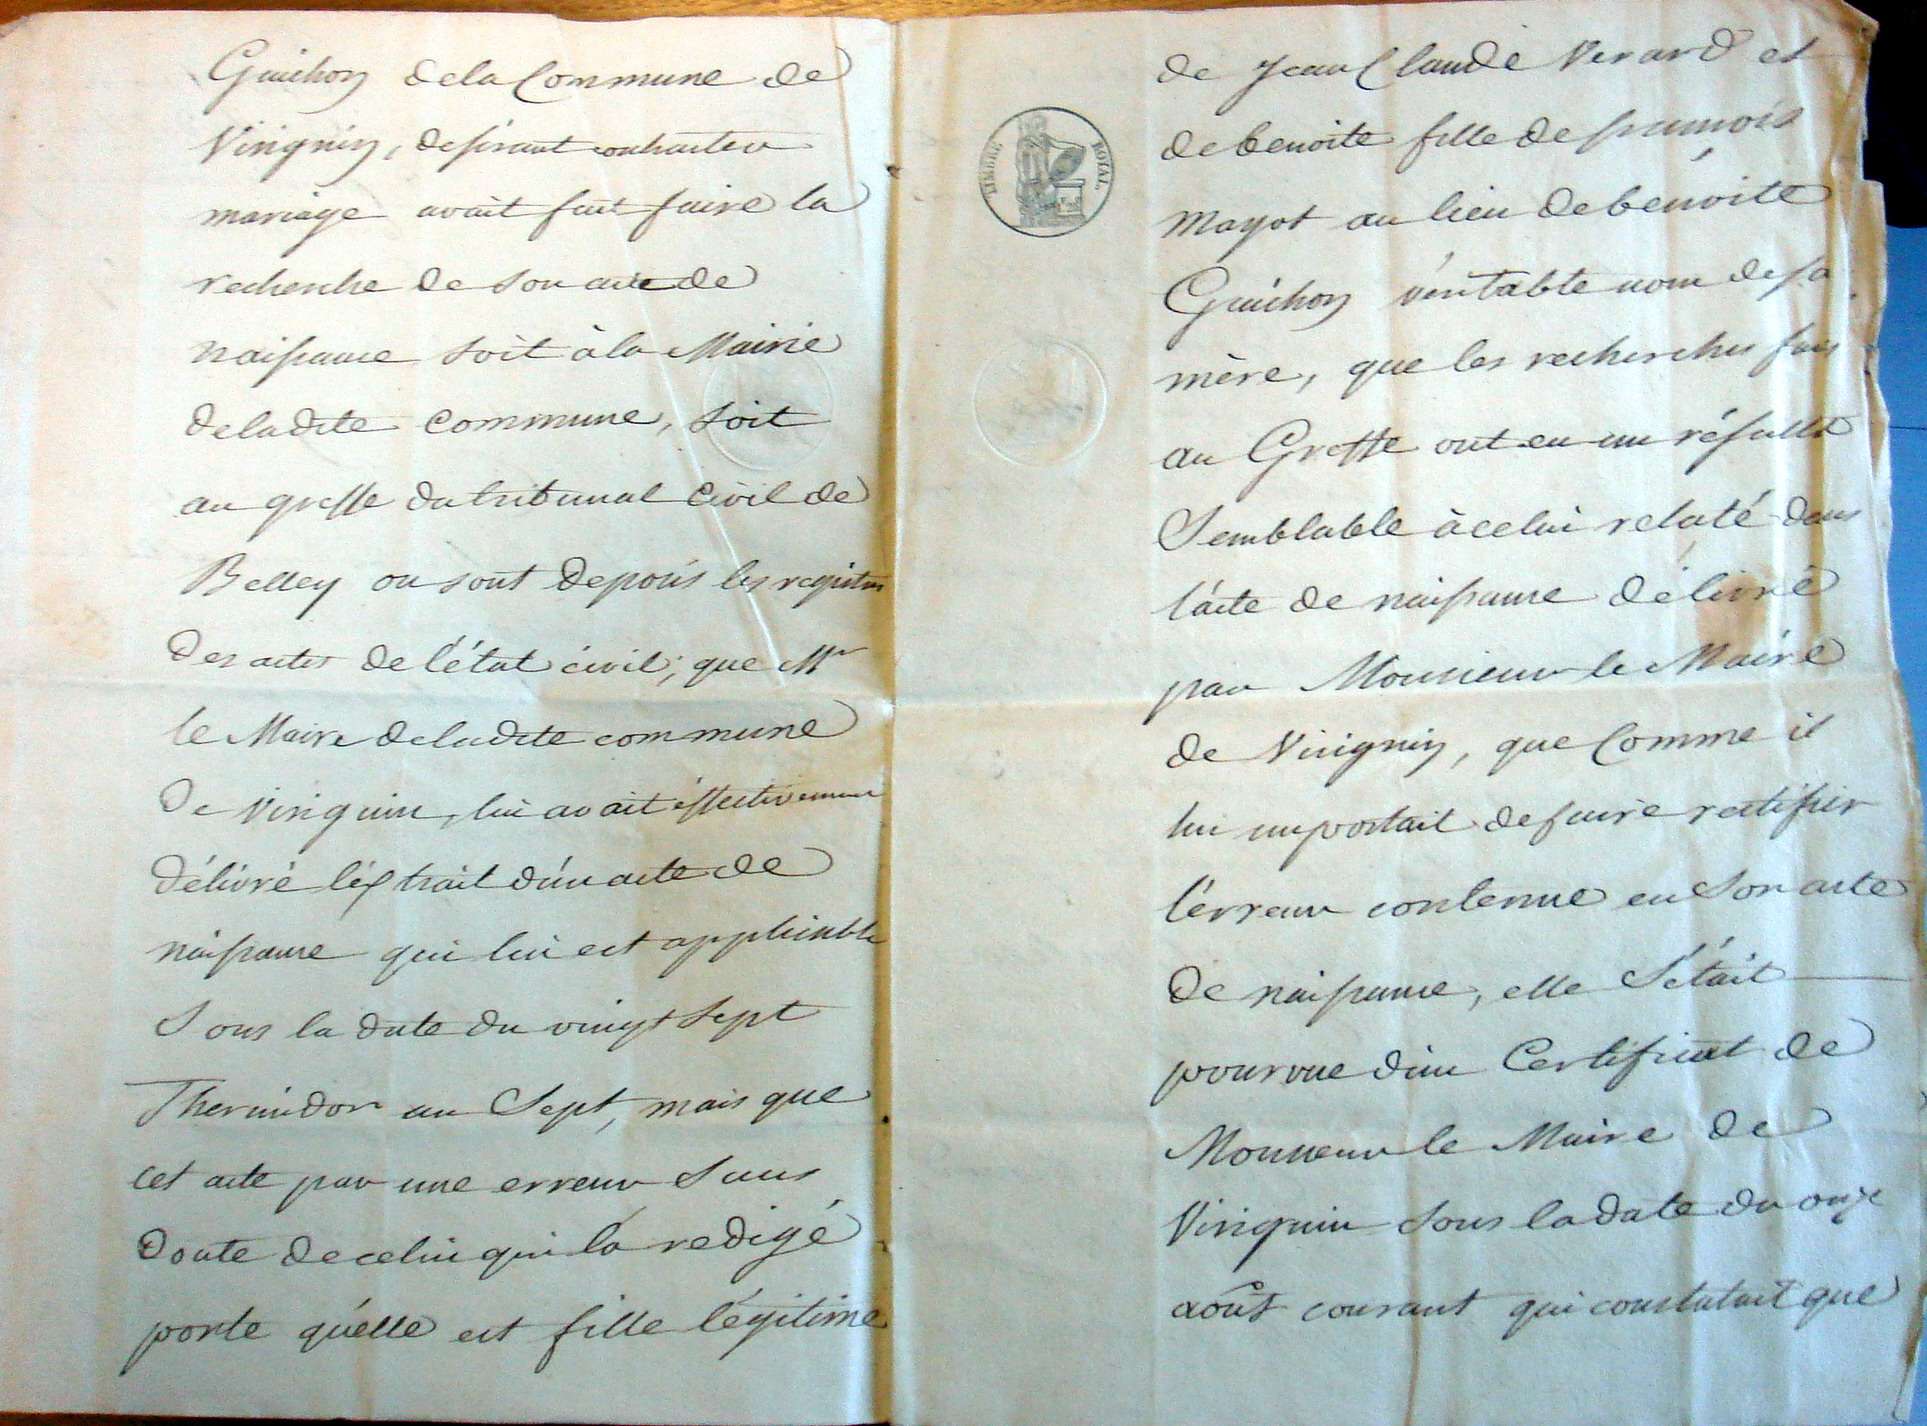 Guichon de la Commune de
Virignin, desirant contracter
mariage avait fait faire la
recherche de son acte de
naissance soit à la Mairie
de la dite commune, soit
au greffe du tribunal Civil de
Belley ou sont deposés les registres
des actes de l'état civil; que Mr
le Maire de ladite commune
de Virignin, lui avait éffectivement
délivré l'éxtrait d'un acte de
naissance qui lui est applicable
Sous la date du vingt Sept
Thermidor an Sept, mais que
cet acte par une erreur Sans
doute de celui qui l'a redigé
porte qu'elle est fille légitime
TIMBRE ROYAL
de Jean Claude Verard et
de benoite fille de françois
Mayot au lieu de benoite
Guichon véritable nom de sa
mère, que les recherches fais
au Greffe ont eu un résultat
Semblable à celui relaté dans
l'acte de naissance délivré
par Monsieur le Maire
de Virignin, que Comme il
lui importait de faire rectifier
l'érreur contenue en Son acte
de naissance, elle S'était
pourvue d'un Certificat de
Monsieur le Maire de
Virignin Sous la date du onze
août courant qui constatait que